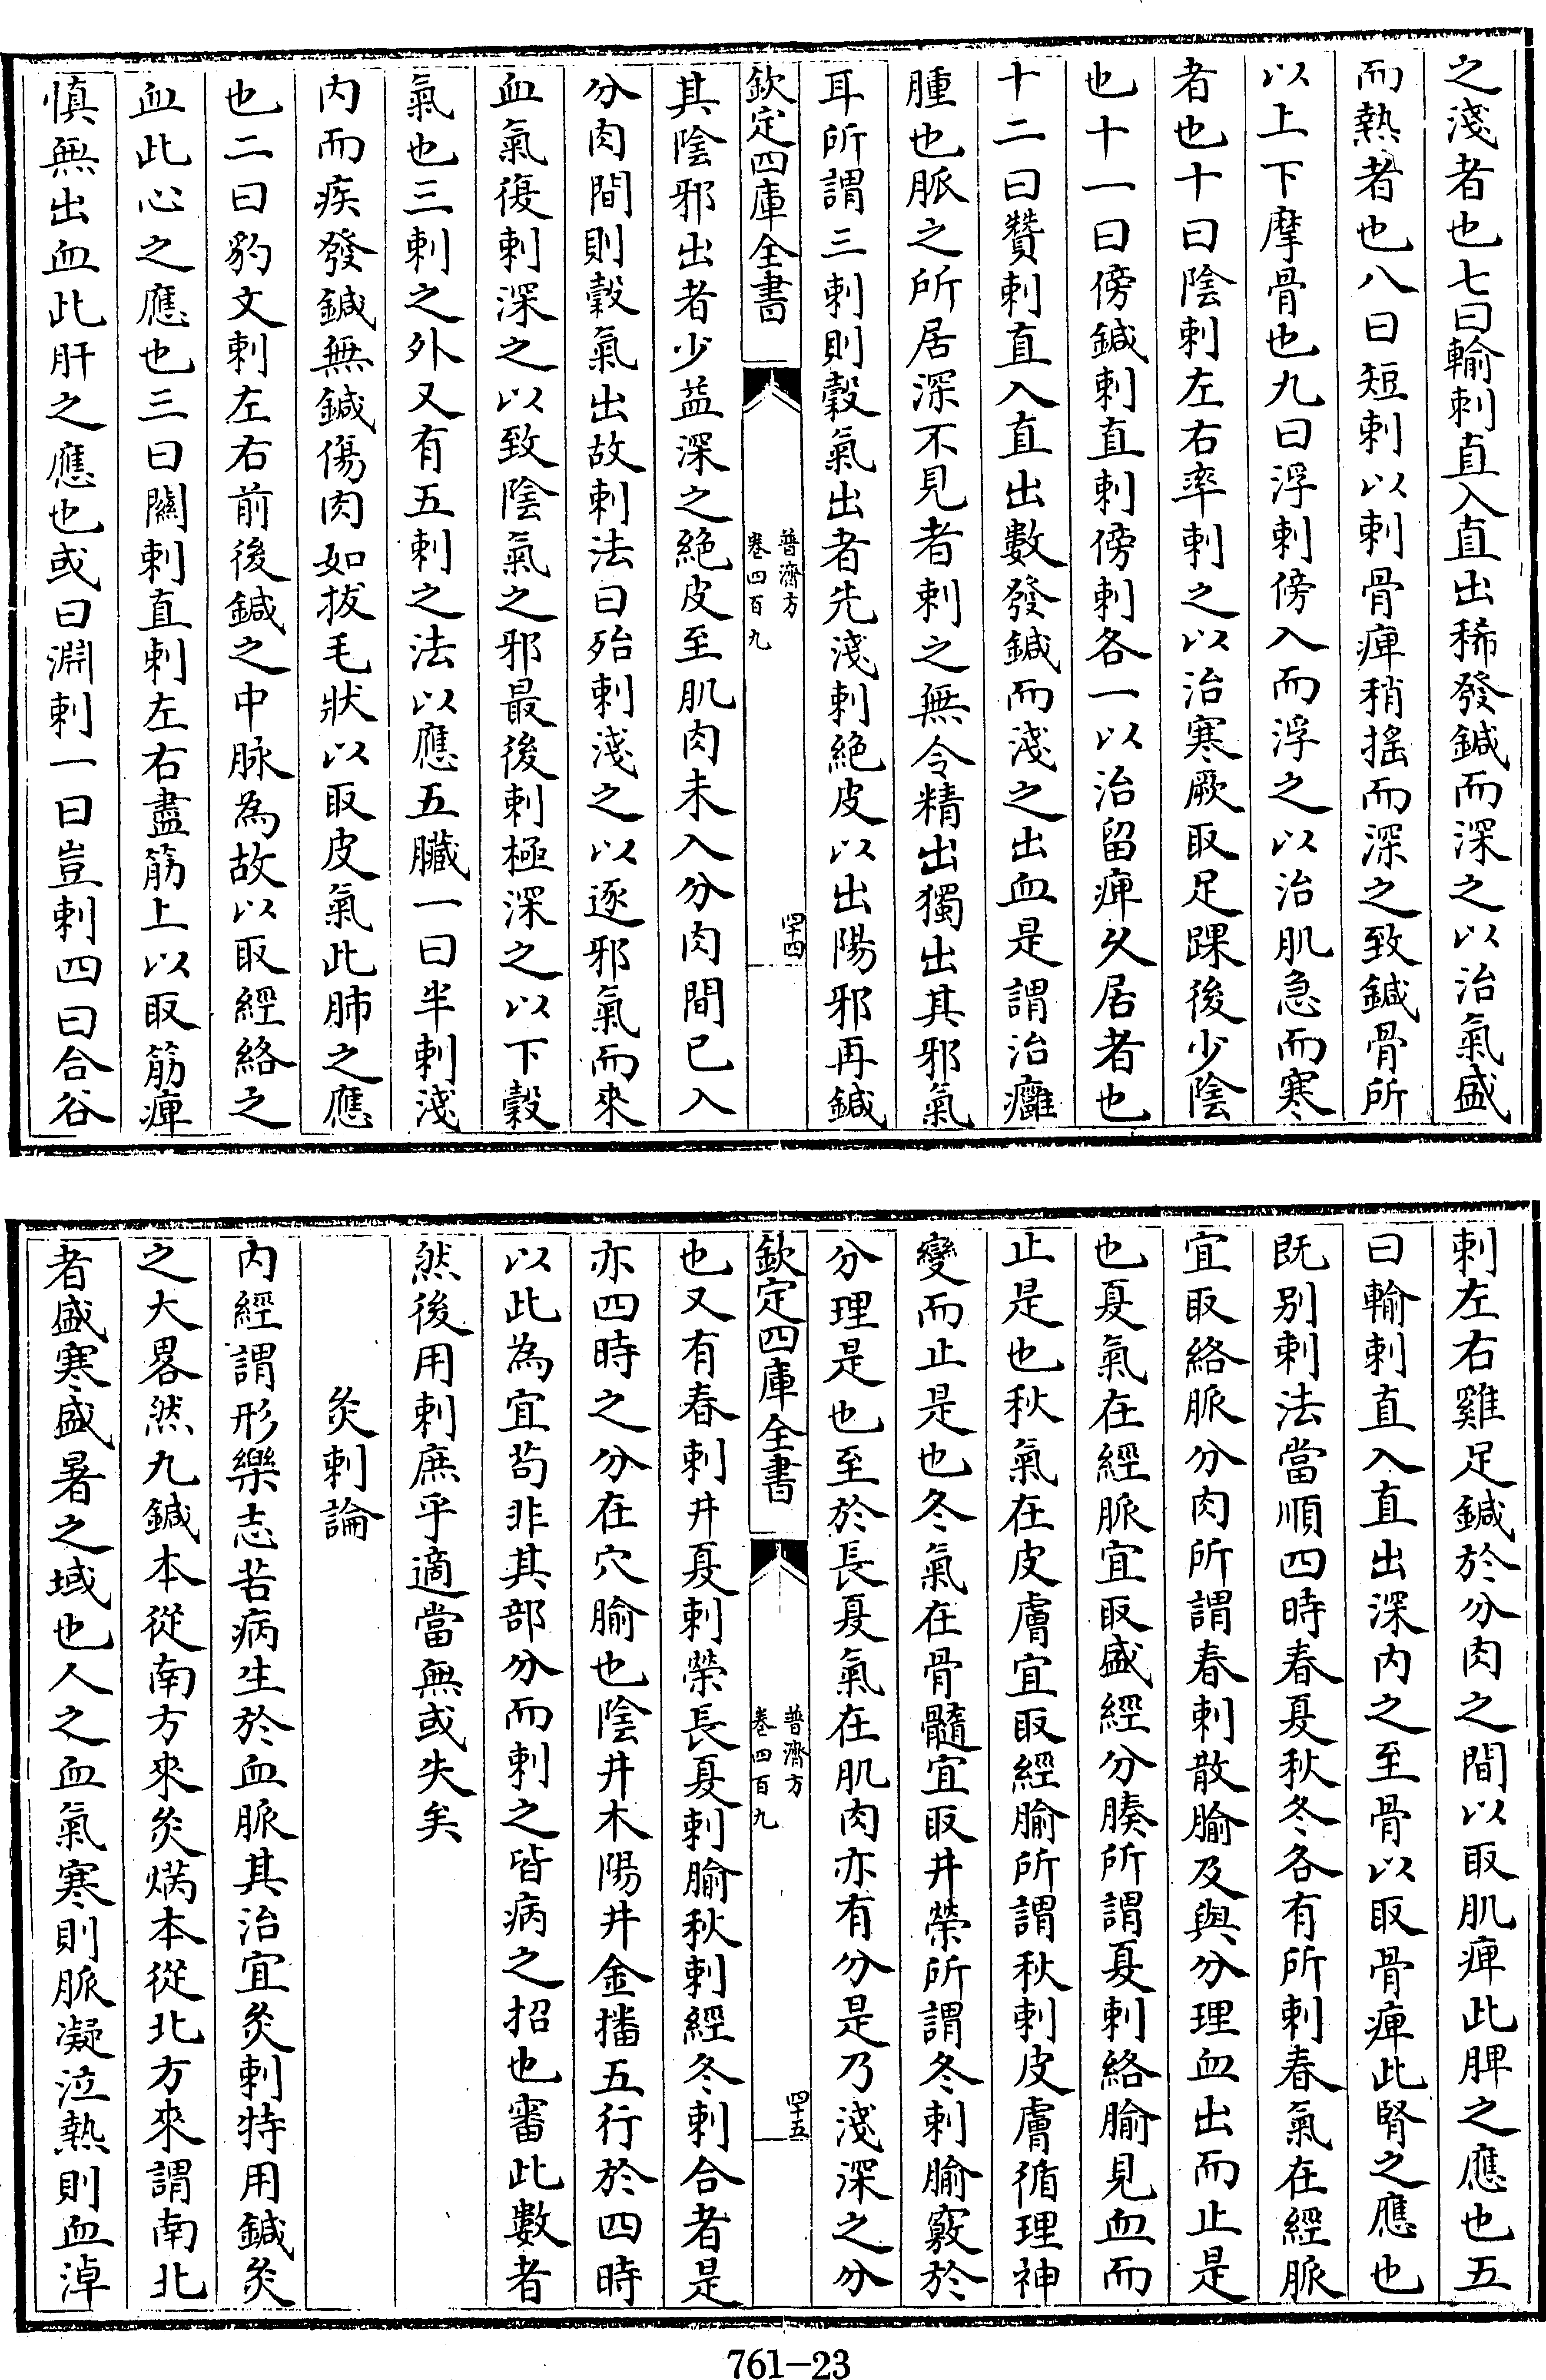 之淺者也七曰輸刺直入直出稀發鍼而深之以治氣盛
而熱者也八曰短刺以刺骨痺稍搖而深之致鍼骨所
以上下摩骨也九曰浮刺傍入而浮之以治肌急而寒
者也十曰陰刺左右率刺之以治寒厥取足踝後少陰
也十一曰傍鍼刺直刺傍刺各一以治留痺久居者也
十二曰贊刺直入直出數發鍼而淺之出血是謂治癰
腫也脈之所居深不見者刺之無令精出獨出其邪氣
耳所謂三刺則穀氣出者先淺刺絶皮以出陽邪再鍼
欽定四庫全書
普濟方
卷四百九
四十四
其陰邪出者少益深之絶皮至肌肉未入分肉間已入
分肉間則穀氣出故刺法曰殆刺淺之以逐邪氣而來
血氣復刺深之以致陰氣之邪最後刺極深之以下穀
氣也三刺之外又有五刺之法以應五臟一曰半刺淺
内而疾發鍼無鍼傷肉如拔毛狀以取皮氣此肺之應
也二曰豹文刺左右前後鍼之中脉為故以取經絡之
血此心之應也三曰關刺直刺左右盡筋上以取筋痺
慎無出血此肝之應也或曰淵刺一曰豈刺四曰合谷
刺左右雞足鍼於分肉之間以取肌痺此脾之應也五
曰輸刺直入直出深内之至骨以取骨痺此腎之應也
既别刺法當順四時春夏秋冬各有所刺春氣在經脈
宜取絡脈分肉所謂春刺散腧及與分理血出而止是
也夏氣在經脈宜取盛經分腠所謂夏刺絡腧見血而
止是也秋氣在皮膚宜取經腧所謂秋刺皮膚循理神
變而止是也冬氣在骨髓宜取井滎所謂冬刺腧竅於
分理是也至於長夏氣在肌肉亦有分是乃淺深之分
欽定四庫全書
普濟方
卷四百九
四十五
也又有春刺井夏刺滎長夏刺腧秋刺經冬刺合者是
亦四時之分在穴腧也陰井木陽井金播五行於四時
以此為宜茍非其部分而刺之皆病之招也審此數者
然後用刺庶乎適當無或失矣
灸刺論
内經謂形樂志苦病生於血脈其治宜灸刺特用鍼灸
之大畧然九鍼本從南方來灸焫本從北方來謂南北
者盛寒盛暑之域也人之血氣寒則脈凝泣熱則血淖
761-23